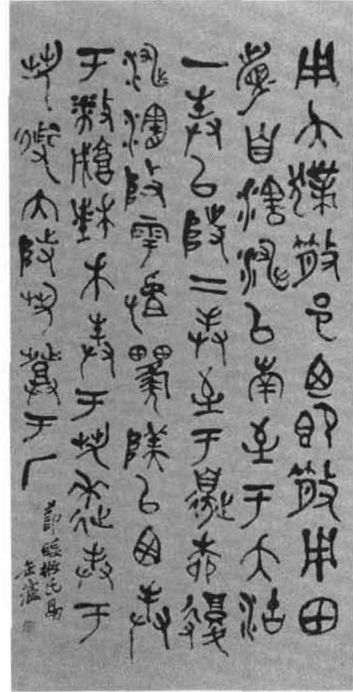 用夨散邑廼即散用田
眉自瀗涉以南至于大沽
一奉以陟二奉至于邊柳復
涉瀗陟雩𠭯陕以西奉
于播城楮木奉于芻逨奉于
芻道内陟芻登于厂
節臨散氏